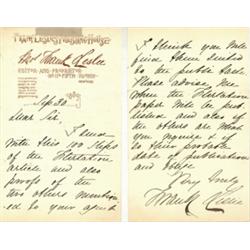 FRANK LESLIE'S PUBLISHING HOUSE
Mrs Frank Leslie
EDITOR AND PROPRIETOR
Sep 30
Dear Sir,
I send
with this 100 slips
of the Flirtation
article and also
proofs of the
two others mention
ed to your
I think you will
find them suited
to the public taste.
Please advise me
when the Flirtation
paper will be pub
lished and also if
the others are what
you require &
so their probable
date of publication
and
Very truly
Frank Leslie